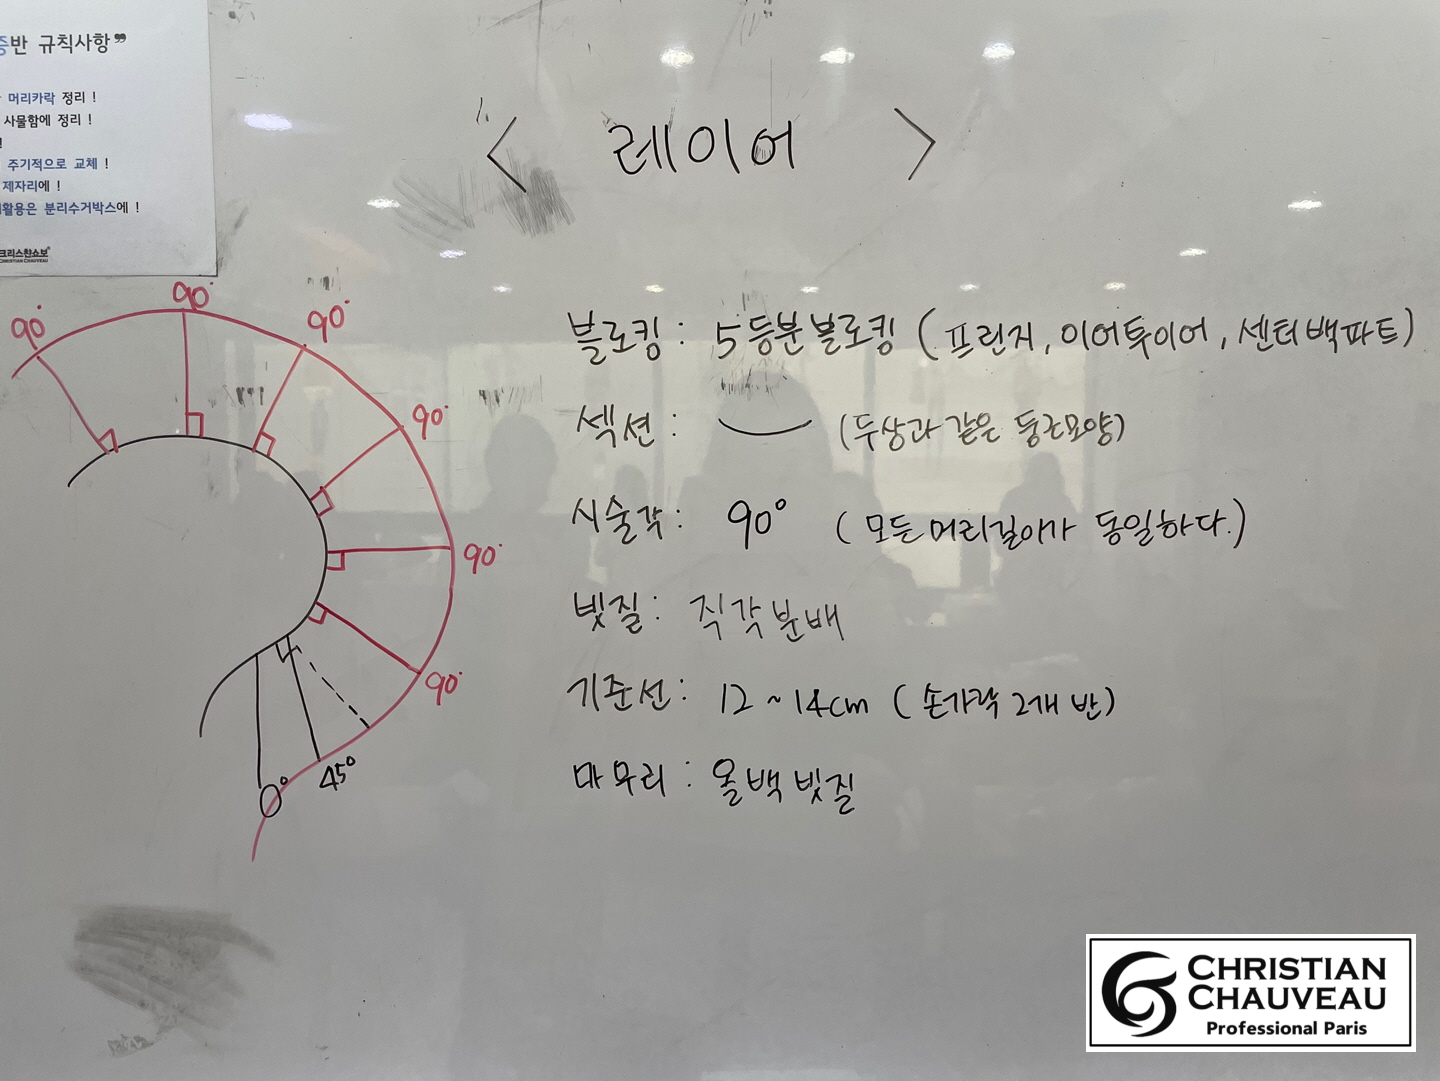 반 규칙사항"
머리카락 정리 !
사물함에 정리 !
!
주기적으로 교체 !
제자리에 !
활용은 분리수거박스에 !
크리스챤쇼보
CHRISTIAN CHAUVEAU
< 레이어 >
90°
90°
90°
90°
90°
90°
45°
0°
블로킹 : 5등분블로킹 ( 프린지, 이어투이어, 센터백파트)
섹션 : (두상과 같은 둥근모양)
시술각 : 90° ( 모든머리길이가 동일하다.)
빗질 : 직각분배
기준선 : 12 ~ 14cm ( 손가락 2개 반)
마무리 : 올백빗질
CHRISTIAN
CHAUVEAU
Professional Paris